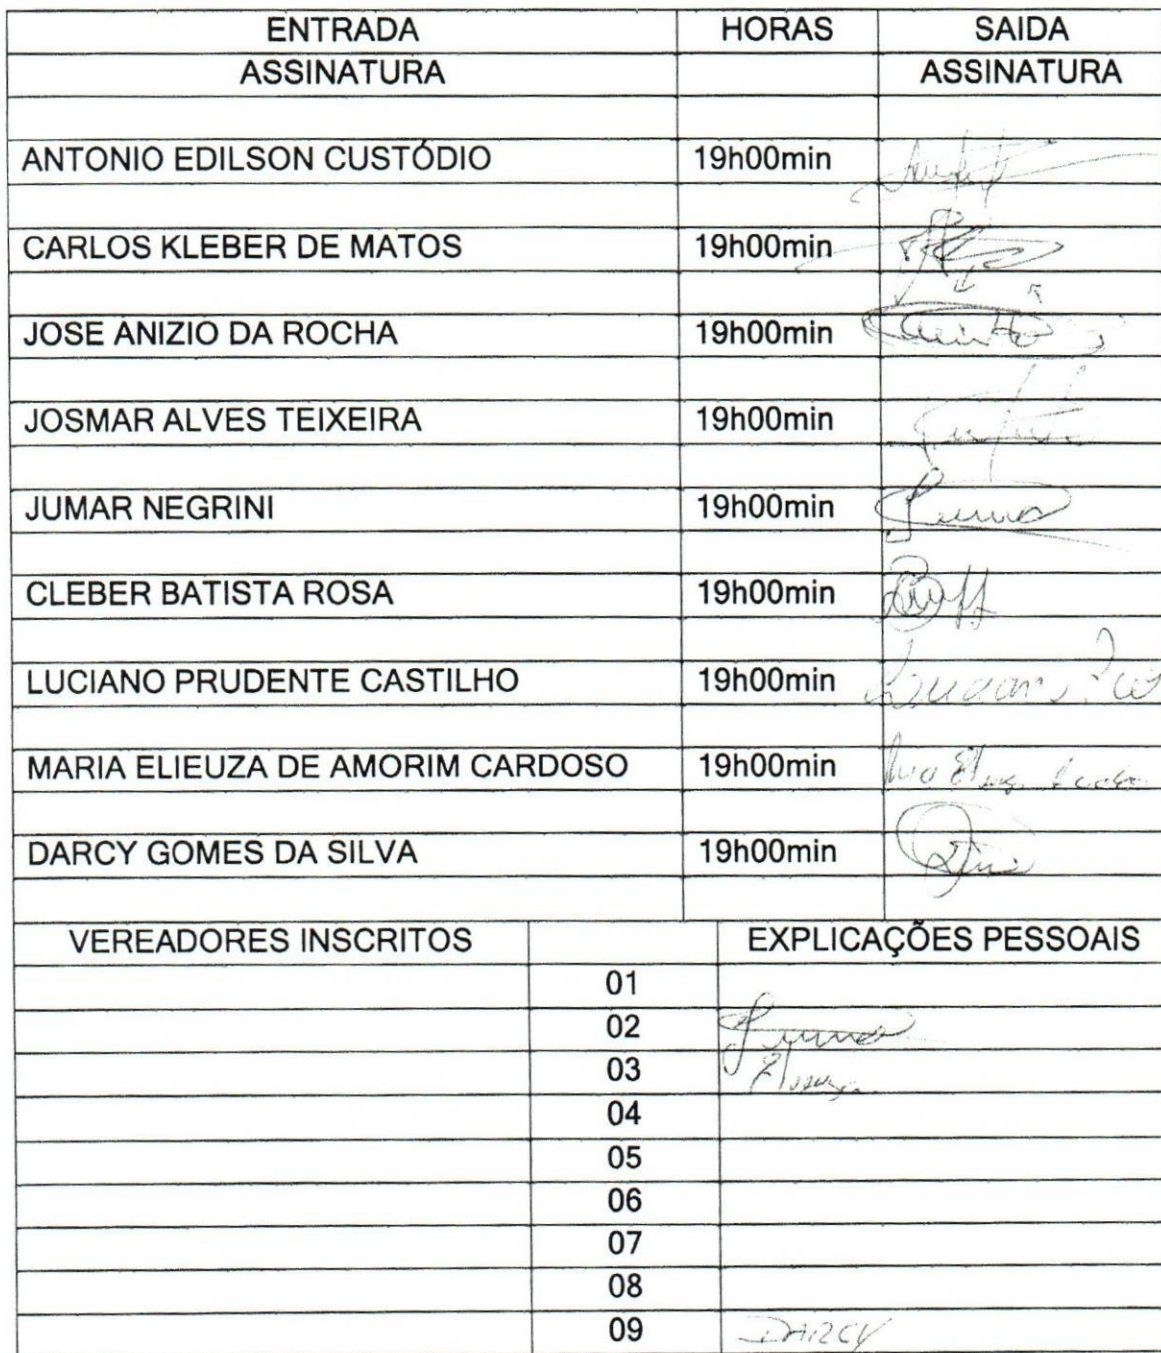 ENTRADA HORAS SAIDA
ASSINATURA ASSINATURA
ANTONIO EDILSON CUSTÓDIO 19h00min
CARLOS KLEBER DE MATOS 19h00min
JOSE ANIZIO DA ROCHA 19h00min
JOSMAR ALVES TEIXEIRA 19h00min
JUMAR NEGRINI 19h00min
CLEBER BATISTA ROSA 19h00min
LUCIANO PRUDENTE CASTILHO 19h00min
MARIA ELIEUZA DE AMORIM CARDOSO 19h00min
DARCY GOMES DA SILVA 19h00min
VEREADORES INSCRITOS EXPLICAÇÕES PESSOAIS
01
02
03
04
05
06
07
08
09 DARCY